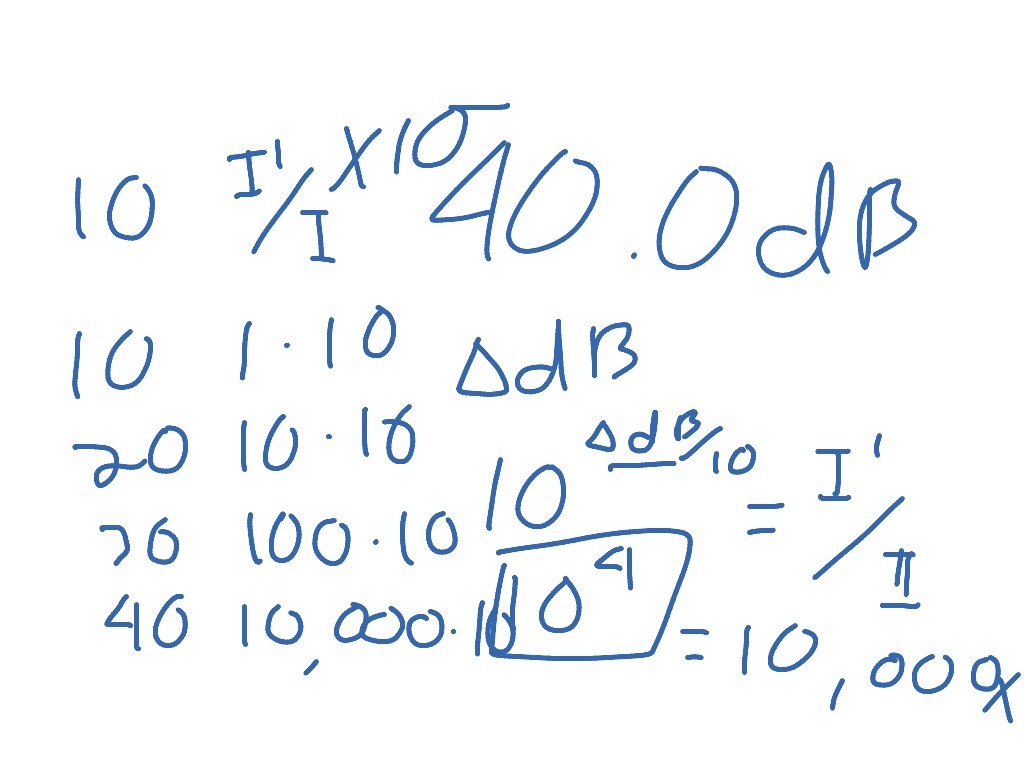 10 I'/I X10 40.0dB
10 1·10 ΔdB
20 10·10 10^ΔdB/10 = I'/I
30 100·10
40 10,000·10 10^4 = 10,000x